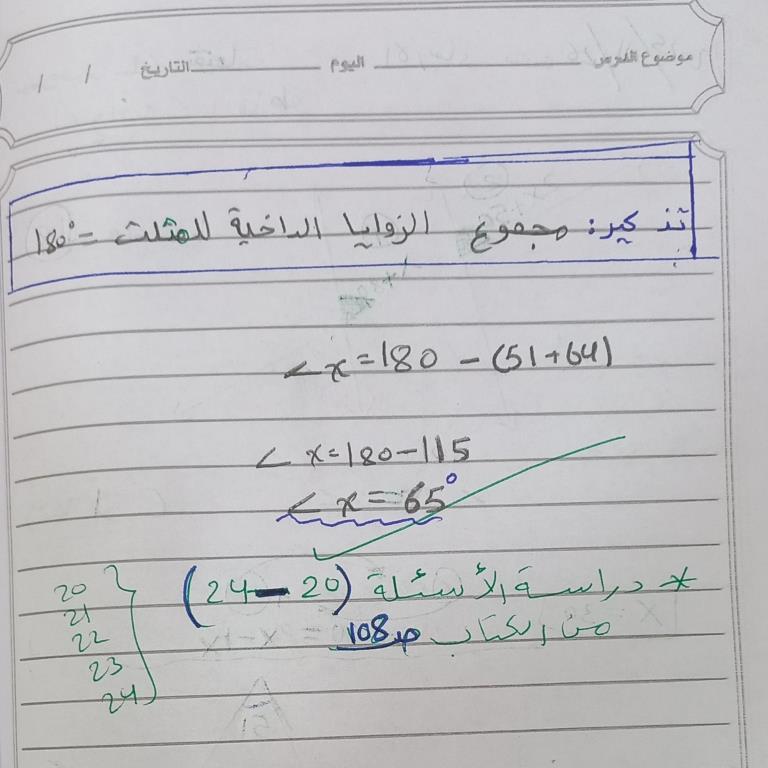 موضوع الدرس ـــــــــــ اليوم ـــــــــــ التاريخ / /
تذكير: مجموع الزوايا الداخية للمثلث = 180°
∠x = 180 - (51+64)
∠x = 180 - 115
∠x = 65°
* دراسة الأسئلة (20 - 24)
من الكتاب ص 108
20
21
22
23
24